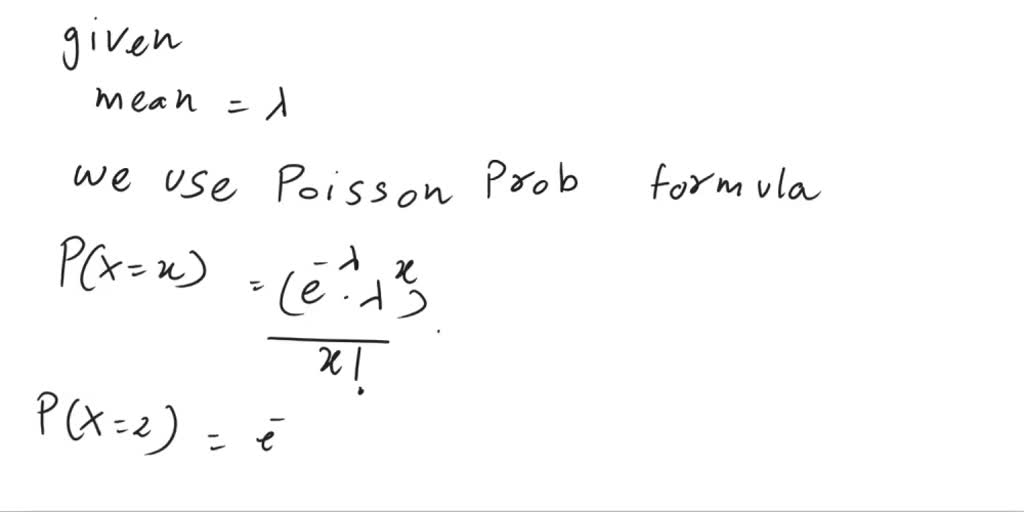 given
mean = λ
we use Poisson Prob formula
P(x=x) = (e^-λ · λ^x)
x!
P(X=2) = e^-